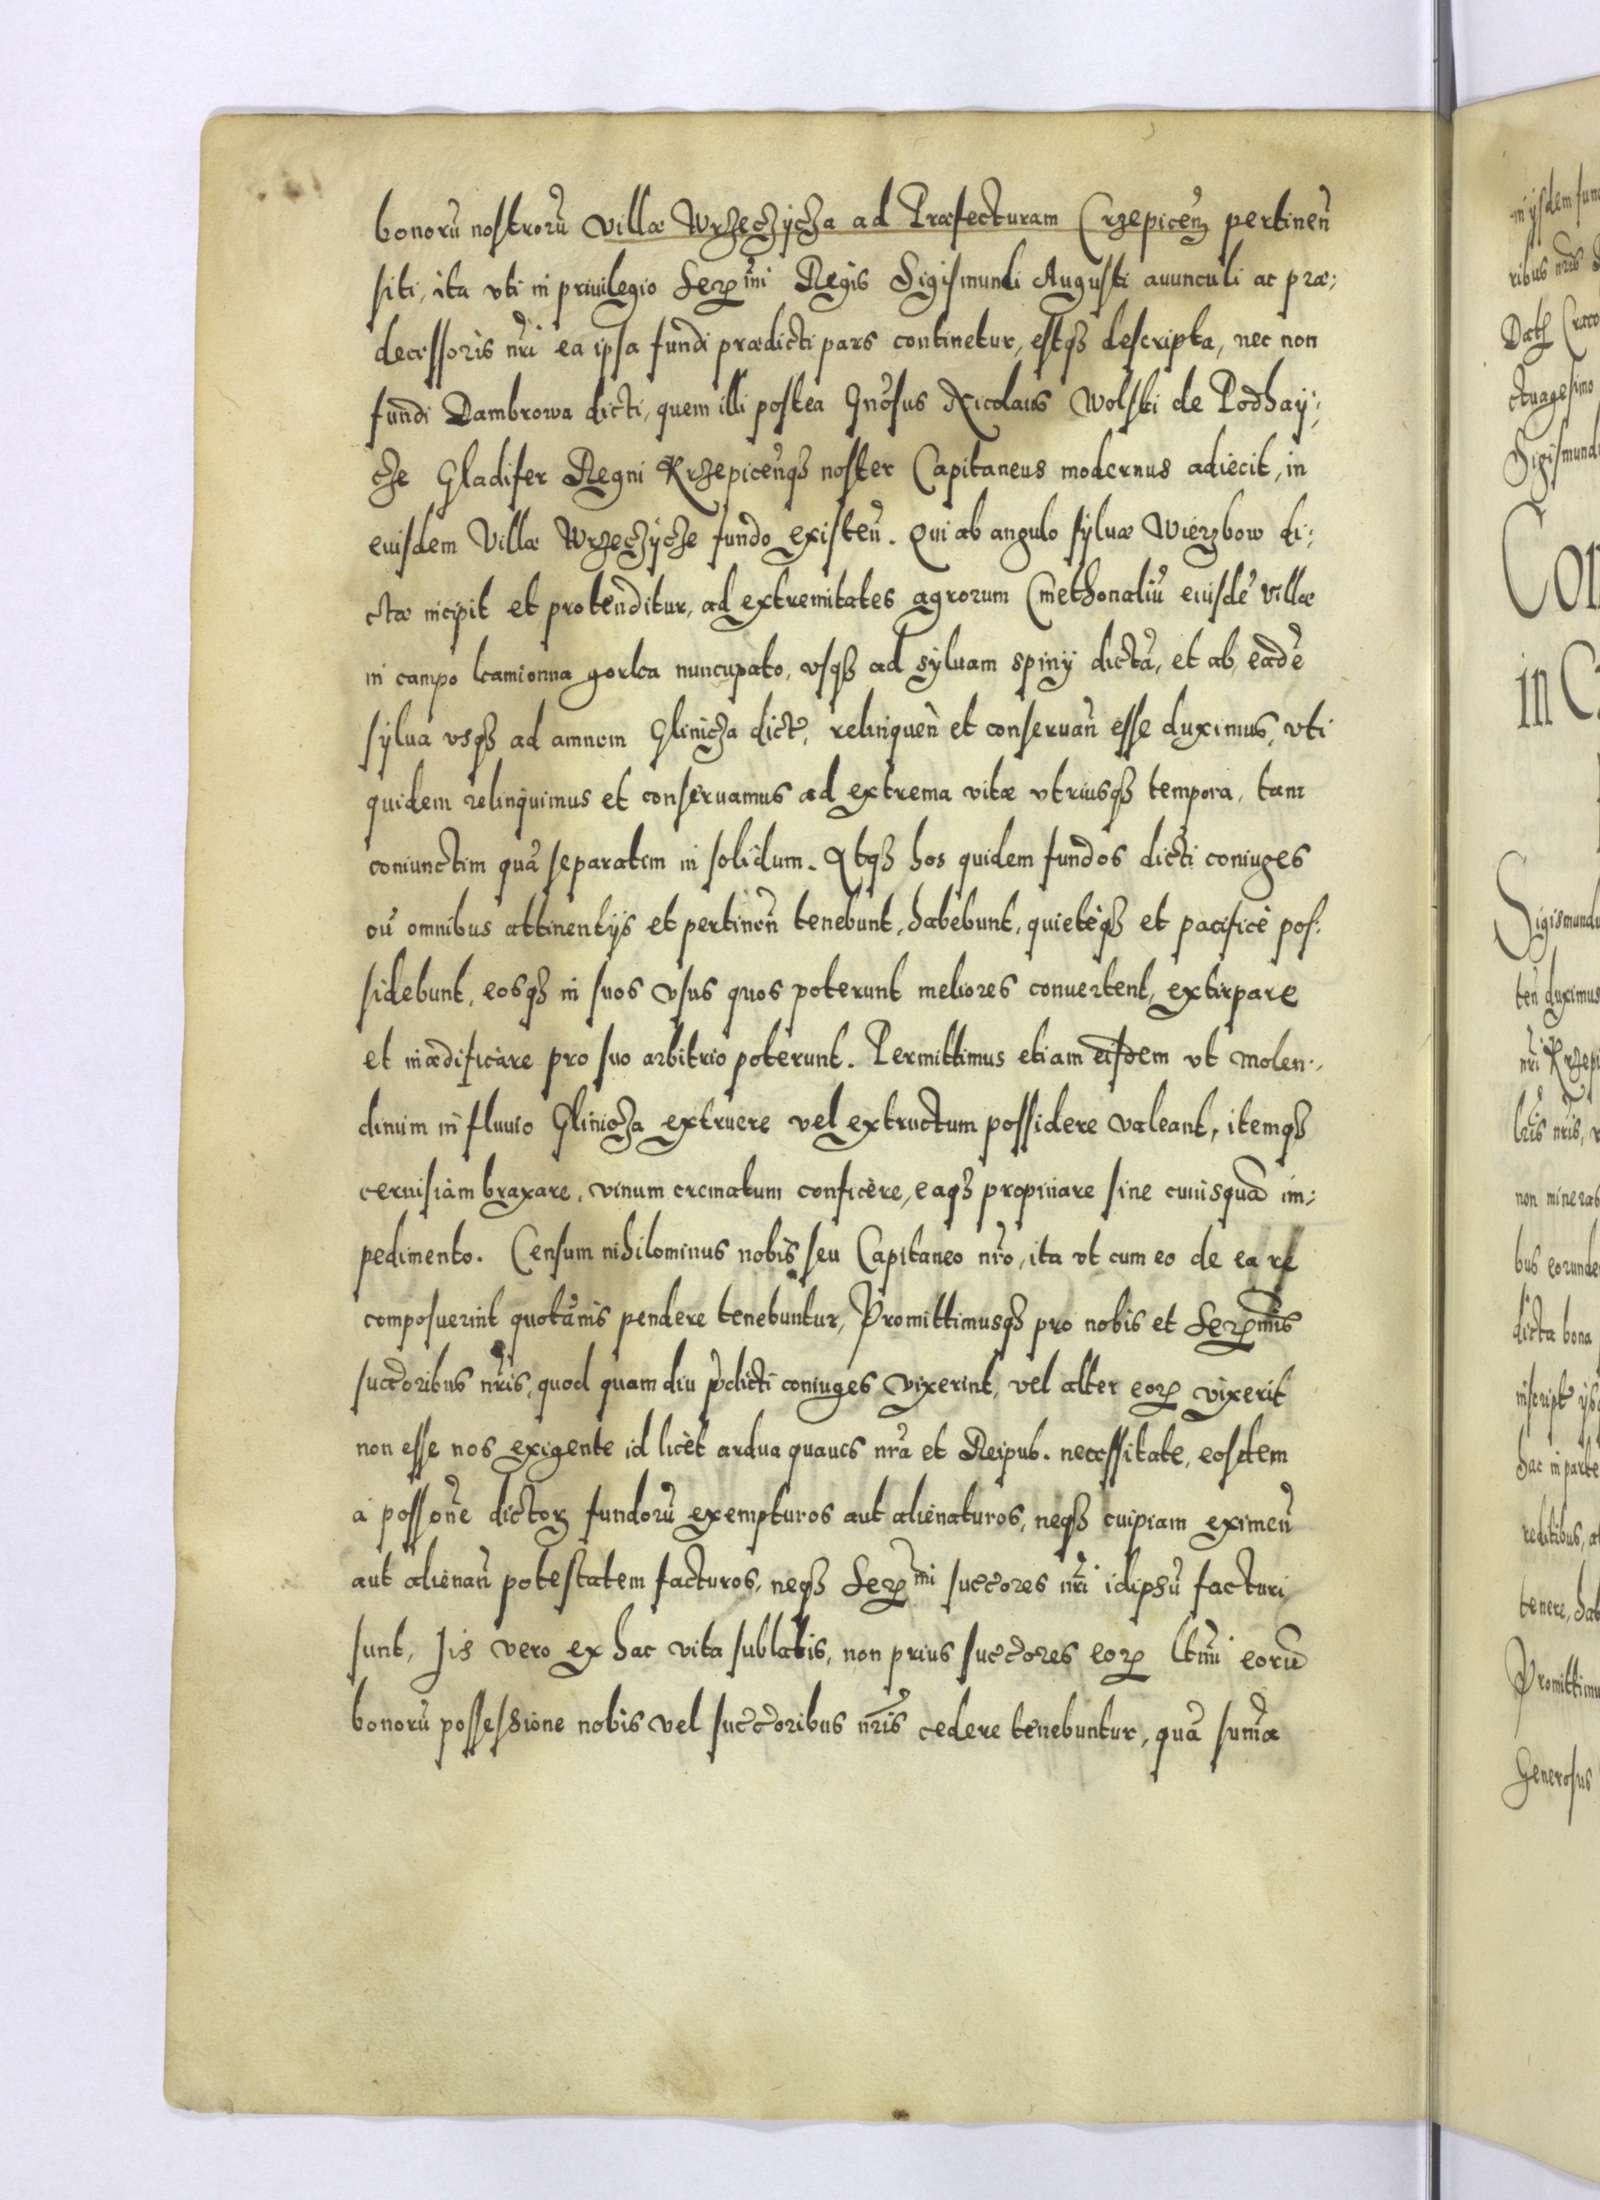 bonorũ nostrorũ Villæ Wrzeczycza ad Præfecturam Crzepiceñ pertineñ
siti, ita vti in priuilegio Serꝫmi Regis Sigismundi Augusti auunculi ac præ:
decessoris nr̃i ea ipsa fundi prædicti pars continetur, estqꝫ descripta, nec non
fundi Dambrowa dicti, quem illi postea Gn̄osus Nicolaus Wolski de Podhay:
cze Gladifer Regni Krzepiceñqꝫ noster Capitaneus modernus adiecit, in
euisdem Villæ Wrzeczycze fundo existeñ. Qui ab angulo syluæ Wierzbow di:
ctæ incipit et protenditur, ad extremitates agrorum Cmethonaliũ eiusdẽ Villæ
in campo kamionna gorka nuncupato, vsqꝫ ad syluam spiny dictã, et ab eadẽ
sylua vsqꝫ ad amnem Glinicza dict, relinqueñ et conseruañ esse duximus, vti
quidem relinquimus et conseruamus ad extrema vitæ vtriusqꝫ tempora, tam
coniunctim quã separatim in solidum. Atqꝫ hos quidem fundos dicti coniuges
cũ omnibus attinentijs et pertineñ tenebunt, habebunt, quietèqꝫ et pacificè pos:
sidebunt, eosqꝫ in suos vsus quos poterunt meliores conuertent, extirpare
et inædificare pro suo arbitrio poterunt. Permittimus etiam eisdem vt molen:
dinum in fluuio Glinicza extruere vel extructum possidere valeant, itemqꝫ
ceruisiam braxare, vinum crematum conficere, eaqꝫ propinare sine cuiusquã im:
pedimento. Censum nihilominus nobis seu Capitaneo nr̃o, ita vt cum eo de ea re
composuerint quotãnis pendere tenebuntur, Promittimusqꝫ pro nobis et Serꝫmis
succ̃oribus nr̃is, quod quam diu p̃dicti coniuges vixerint, vel alter eorꝫ vixerit
non esse nos exigente id licèt ardua quauis nr̃a et Reipub. necessitate, eosdem
à poss̃one dictorꝫ fundorũ exempturos aut alienaturos, neqꝫ cuipiam eximeñ
aut alienañ potestatem facturos, neqꝫ Serꝫmi succ̃ores nr̃i idipsũ facturi
sunt, Iis vero ex hac vita sublatis, non prius succ̃ores eorꝫ ltm̃i eorũ
bonorũ possessione nobis vel succ̃oribus nr̃is cedere tenebuntur, quã sum̃a